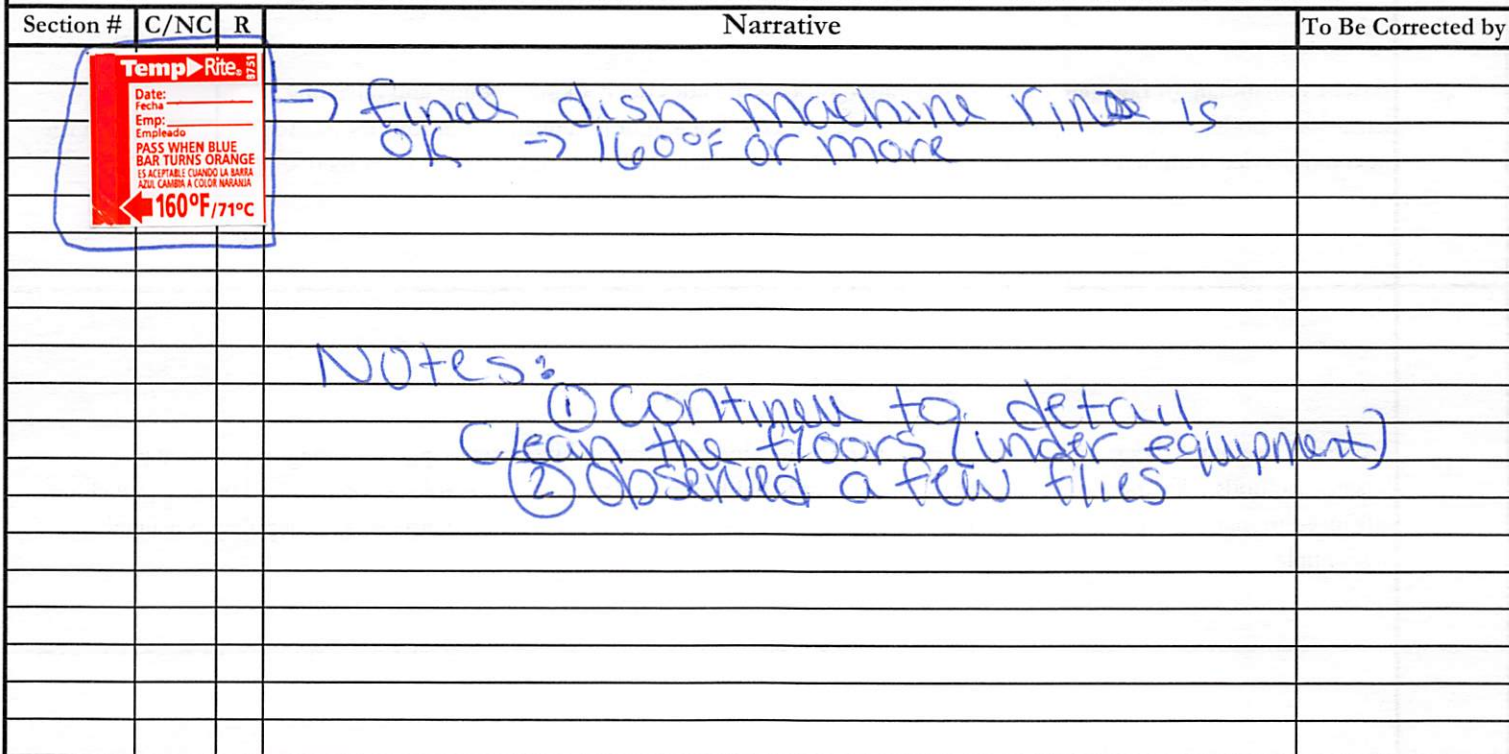 Section # C/NC R Narrative To Be Corrected by
Temp Rite® 9751
Date:
Fecha
Emp:
Empleado
PASS WHEN BLUE
BAR TURNS ORANGE
ES ACEPTABLE CUANDO LA BARRA
AZUL CAMBIA A COLOR NARANJA
160°F/71°C
→ final dish machine rinse is
OK → 160°F or more
Notes:
① Continue to detail
Clean the floors (under equipment)
② Observed a few flies